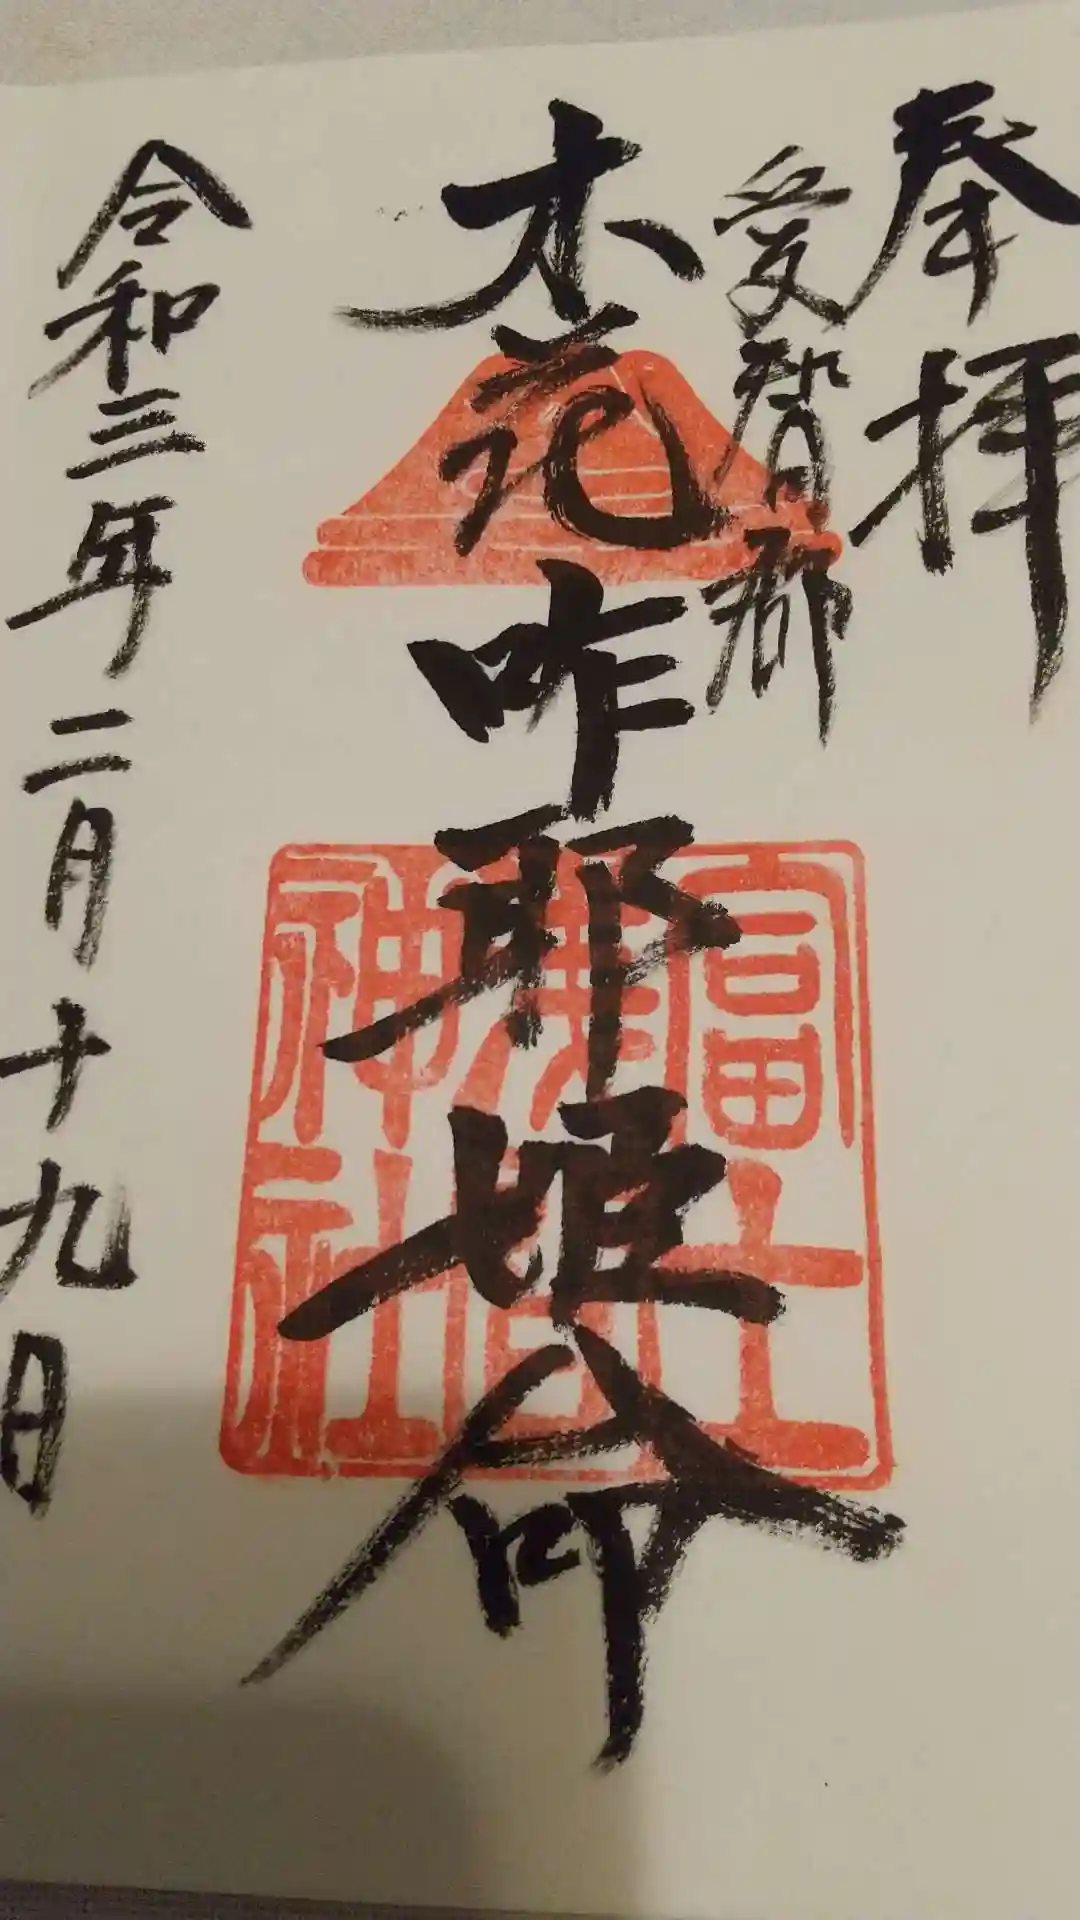 奉拝
愛智郡
木花咲耶姫命
富士
浅間
神社
令和三年二月十九日